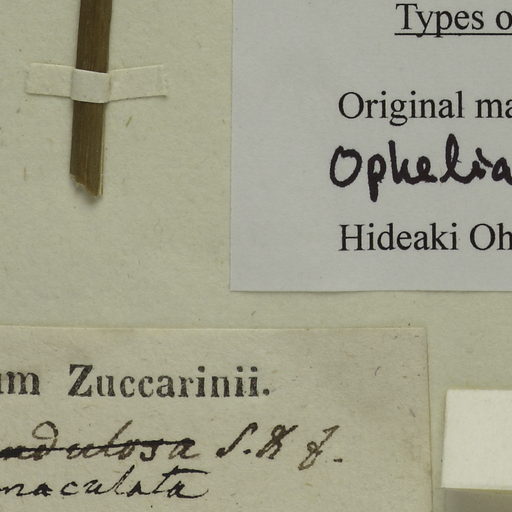 Types o
Original ma
Ophelia
Hideaki Oh
um Zuccarinii.
ndulosa S. & Z.
maculata